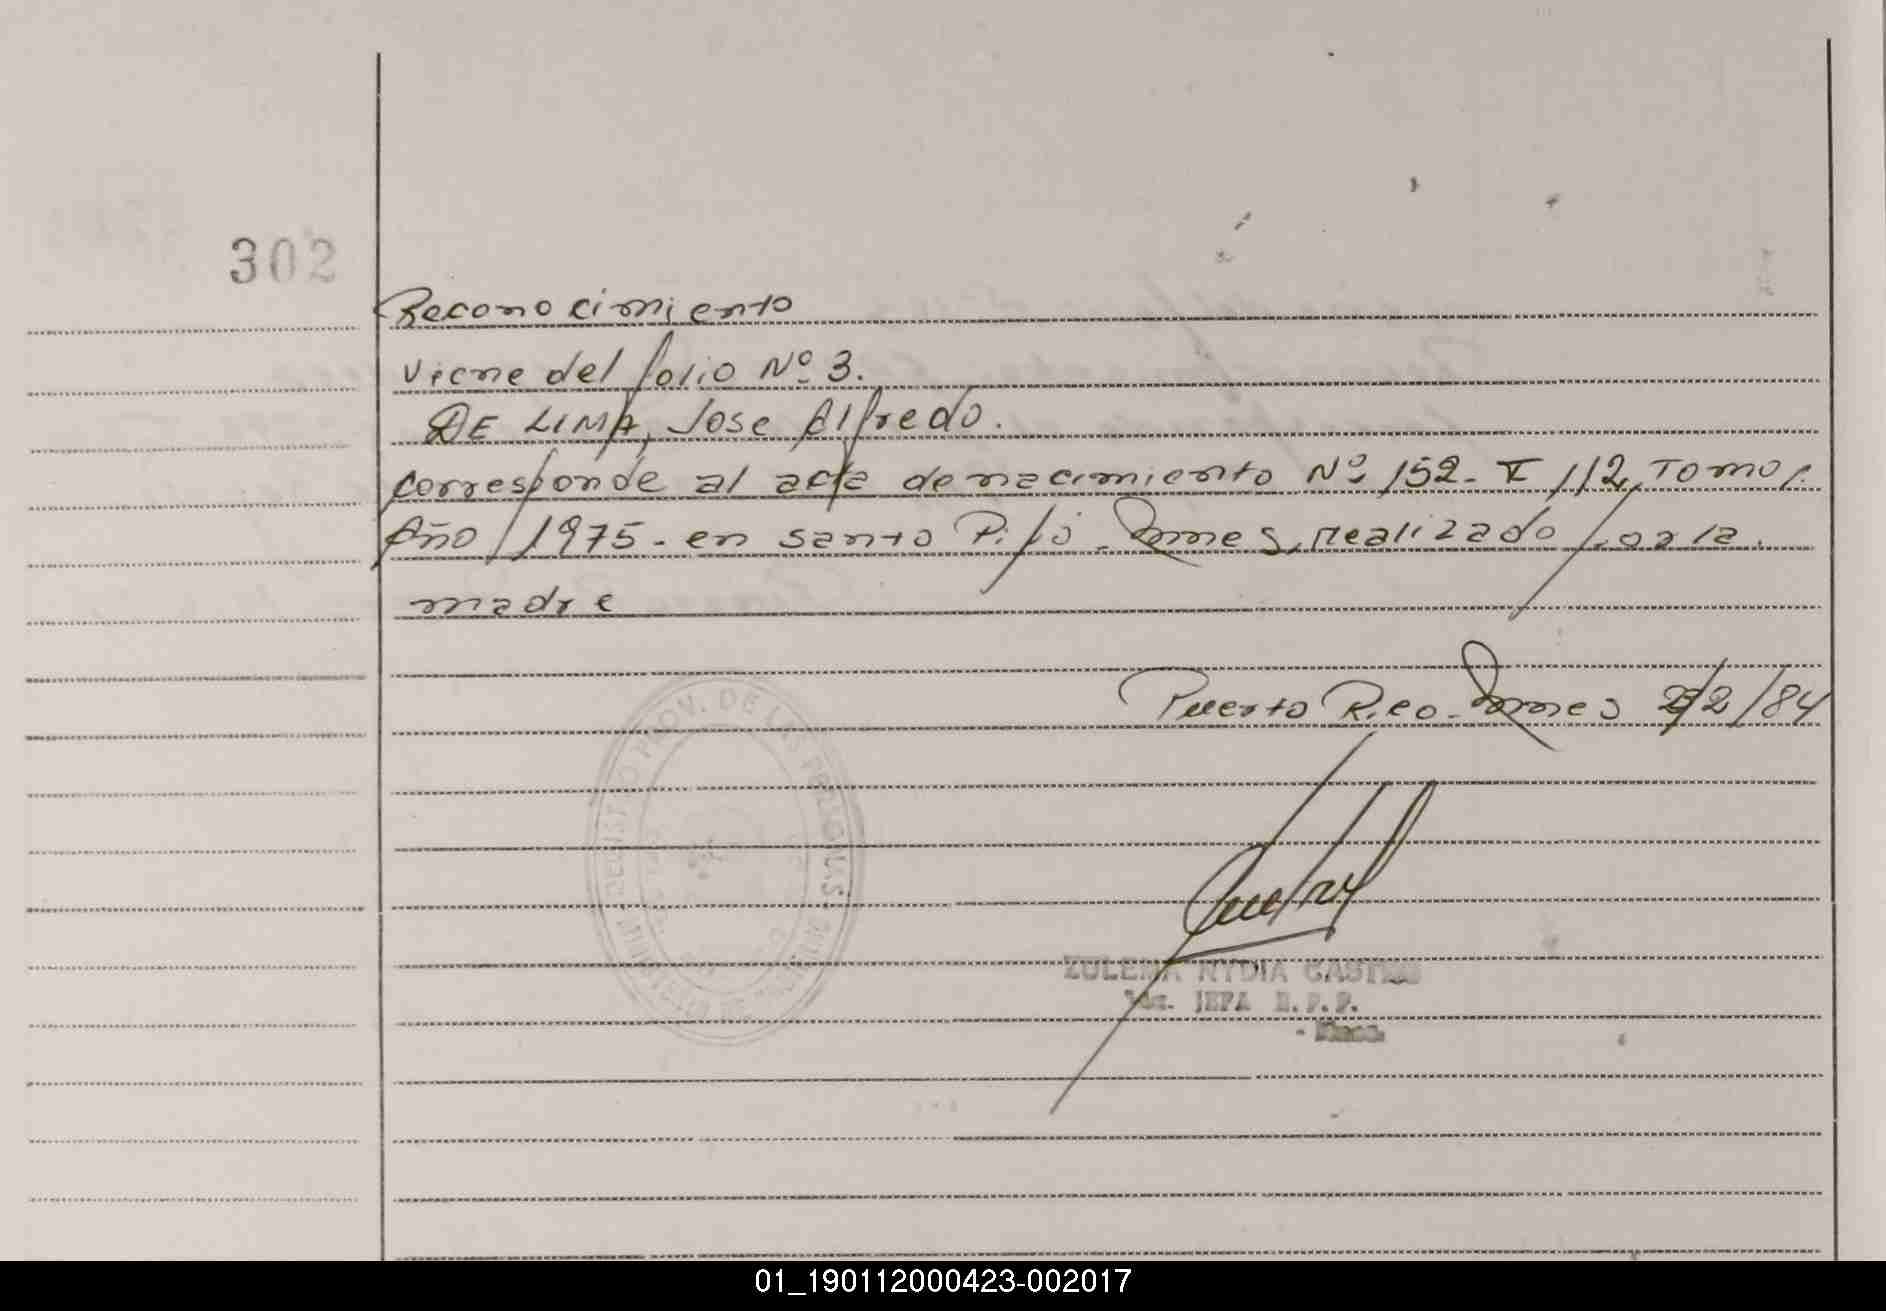 302
Reconocimiento
Viene del folio Nº 3.
DE LIMA, Jose Alfredo.
corresponde al acta de nacimiento Nº 152- 112, Tomo
Año 1975- en santo Pipó- Mnes, realizado por la
madre
Puerto Rico- Mnes 2/84
REGISTRO PROV. DE LAS PERSONAS - MINISTERIO DE
ZULEMA NYDIA CASTRO
JEFA R.P.P.
01_190112000423-002017